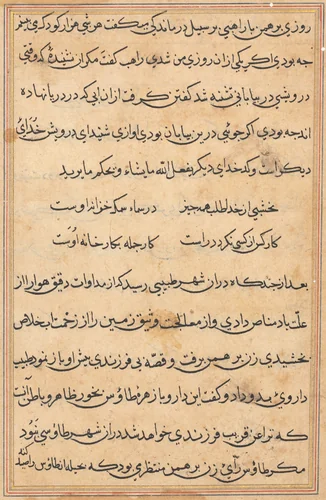 روزی برهمن با راهبی بر سبیل درماندگی میگفت هر شبی هزار گودکردی بیتم
چه بودی اگر یکی ازان روزی من شدی راهب گفت مکر از نشنیدهٔ که وقتی
درویشی در بیابانی تشنه شد گفتن گرفت از ان ابی که در دریا نهاده
اند چه بودی اگر جوئی درین بیابان بودی اوازی شنید ای درویش خدای
دیگر است و کدخدای دیگر یفعل الله ما یشاء و یحکم ما یرید
نخشبی از خدا طلب همه چیز در سماء سمک خزانه اوست
کار کن از کسی نکردد راست کار جمله بکارخانه اوست
بعد از چندگاه در ان شهر طبیبی رسید که از مداوات دقق هوا را از
علت باد مناص دادی و از معالجت وثیق زمین را از زحمت تب خلاص
بخشیدی زن برهمن برفت و قصه بی فرزندی پیش او باز نمود طبیب
داروی بدو داد و گفت این دارو با زهرهٔ طاوس بخور ظاهر و باطن آنست
که ترا عن قریب فرزندی خواهد شد در ان شهر طاوسی نبود
مگر طاوس رای زن برهمن منتظری بود که بحیله انطاوس را صید کند